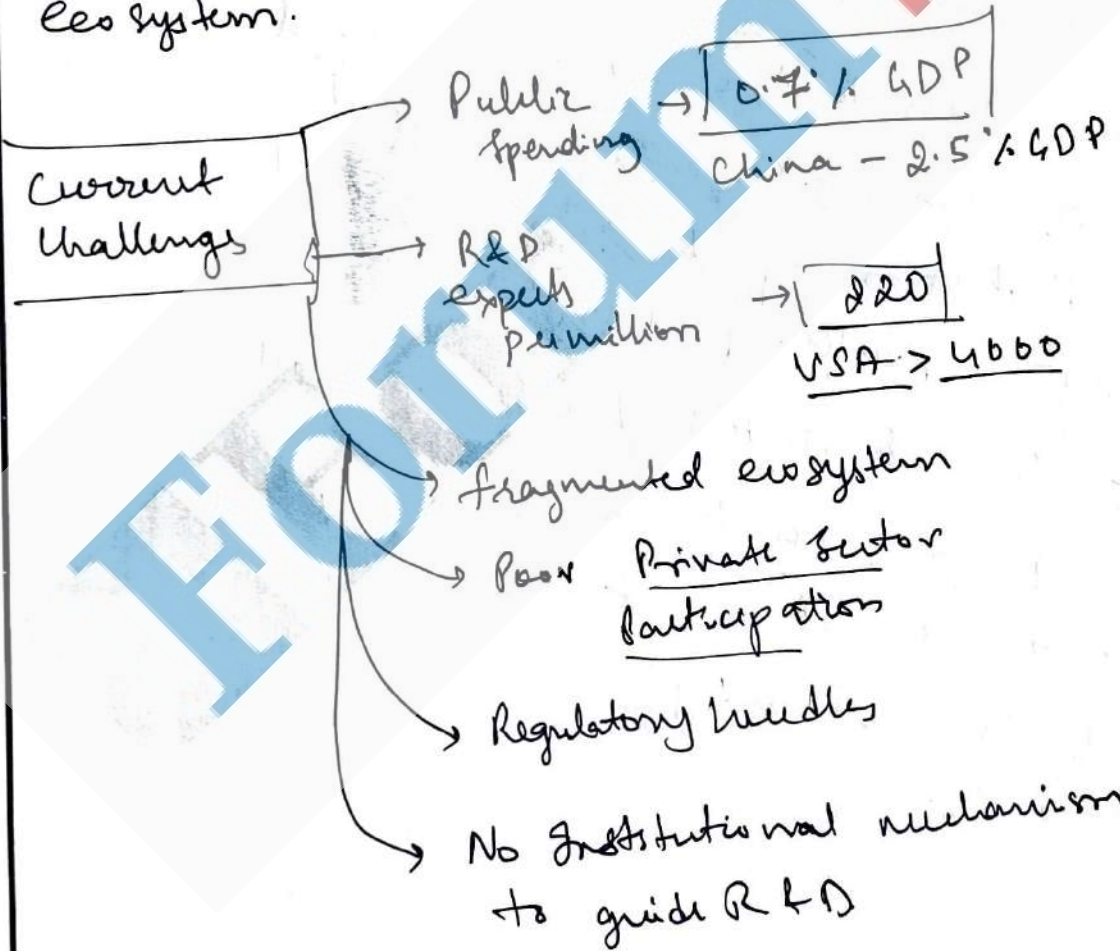 eco system.
Current
Challenges
Public
spending → 0.7% GDP
China - 2.5% GDP
R&D
experts
per million → 220
USA > 4000
fragmented ecosystem
Poor Private Sector
Participation
Regulatory hurdles
No Institutional mechanism
to guide R&D
Forum